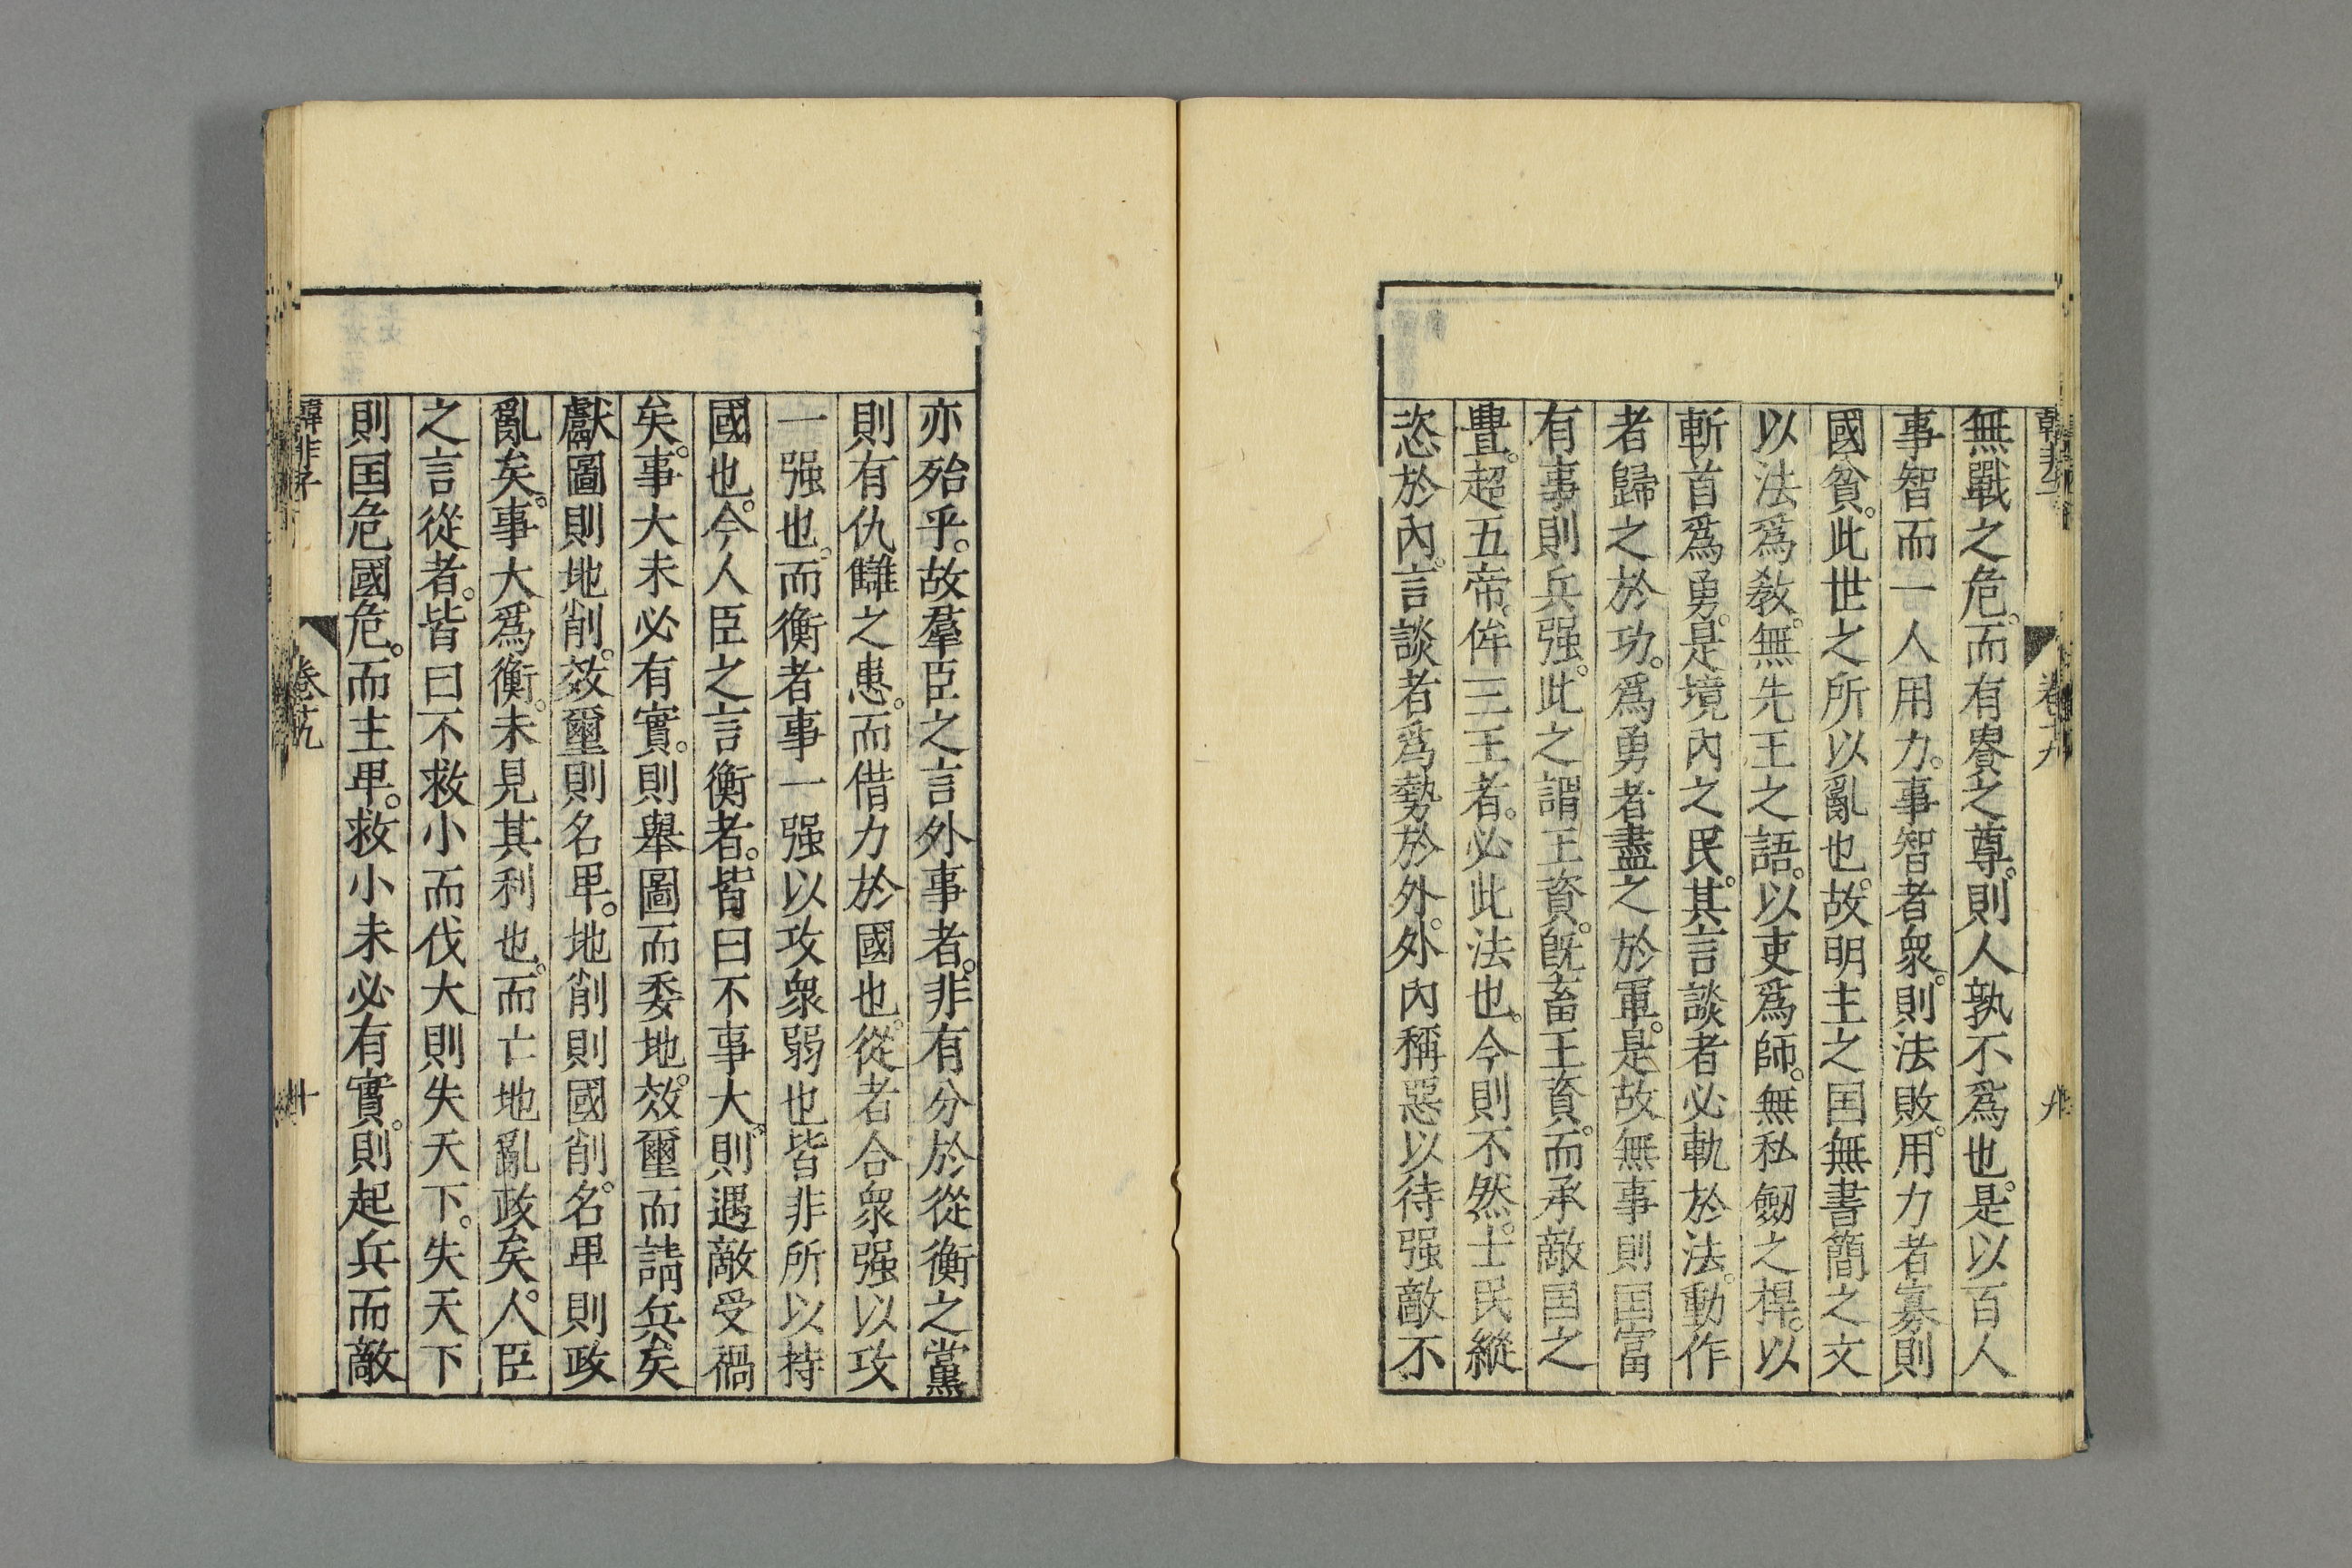 無戰之危。而有貴之尊。則人孰不爲也。是以百人
事智而一人用力。事智者衆。則法敗。用力者寡則
國貧。此世之所以亂也。故明主之国無書簡之文
以法爲教。無先王之語。以吏爲師。無私劒之捍。以
斬首爲勇。是境內之民。其言談者必軌於法。動作
者歸之於功。爲勇者盡之於軍。是故無事則国富
有事則兵强。此之謂王資。旣畜王資。而承敵国之
舋。超五帝。侔三王者。必此法也。今則不然。士民縱
恣於內。言談者爲勢於外。外內稱惡以待强敵不
亦殆乎。故羣臣之言外事者。非有分於從衡之黨
則有仇讎之患。而借力於國也。從者合衆强以攻
一强也。而衡者事一强以攻衆弱也皆非所以持
國也。今人臣之言衡者。皆曰不事大。則遇敵受禍
矣。事大未必有實。則舉圖而委地。效璽而請兵矣
獻圖則地削。效璽則名卑。地削則國削。名卑則政
亂矣。事大爲衡。未見其利也。而亡地亂政矣。人臣
之言從者。皆曰不救小而伐大則失天下。失天下
則国危國危。而主卑。救小未必有實。則起兵而敵
韓非子 卷十九 十